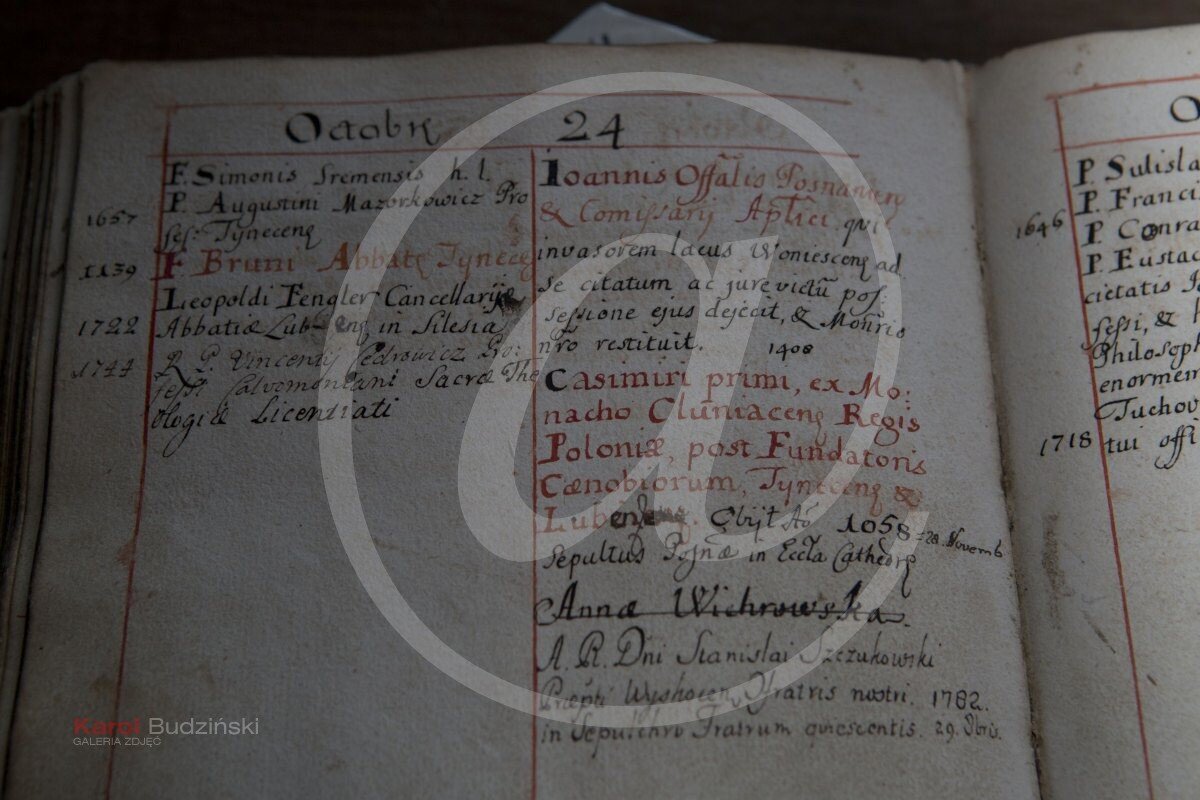 Octobr 24
F. Simonis Sremensis h. l.
P. Augustini Mazorkowicz Pro
1657
fess: Tynecens
1139 F. Bruni Abbatis Tynecens
Leopoldi Fengler Cancellarij
1722 Abbatiæ Lub ens in Silesia
1744 R. P. Vincentij Pro:
fessi Calvomontani Sacræ The
ologiæ Licentiati
Ioannis Offalis Posnaniens
& Comissarij Aplici qui
invasorem lacus Woniescens ad
se citatum ac jure victu pos:
sessione ejus dejecit, & Monrio
nro restituit. 1408
Casimiri primi, ex Mo:
nacho Cluniacens Regis
Poloniæ, post Fundatoris
Cænobiorum, Tynecens &
Lubens. Obijt Ao 1058 28. Novemb
Sepultus Posnæ in Eccla Cathedr
Annæ Wichrowska.
A. R. Dni Stanislai Szczukowski
nostri. 1782.
in Sepulchro Fratrum quiescentis. 29. 8bris.
O
P. Sulisla
P. Franci
1646 P. Conra
P. Eustac
cietatis
fessi, &
Philosoph
enormem
Tuchov
1718 tui offi
@
Karol Budziński
GALERIA ZDJĘĆ